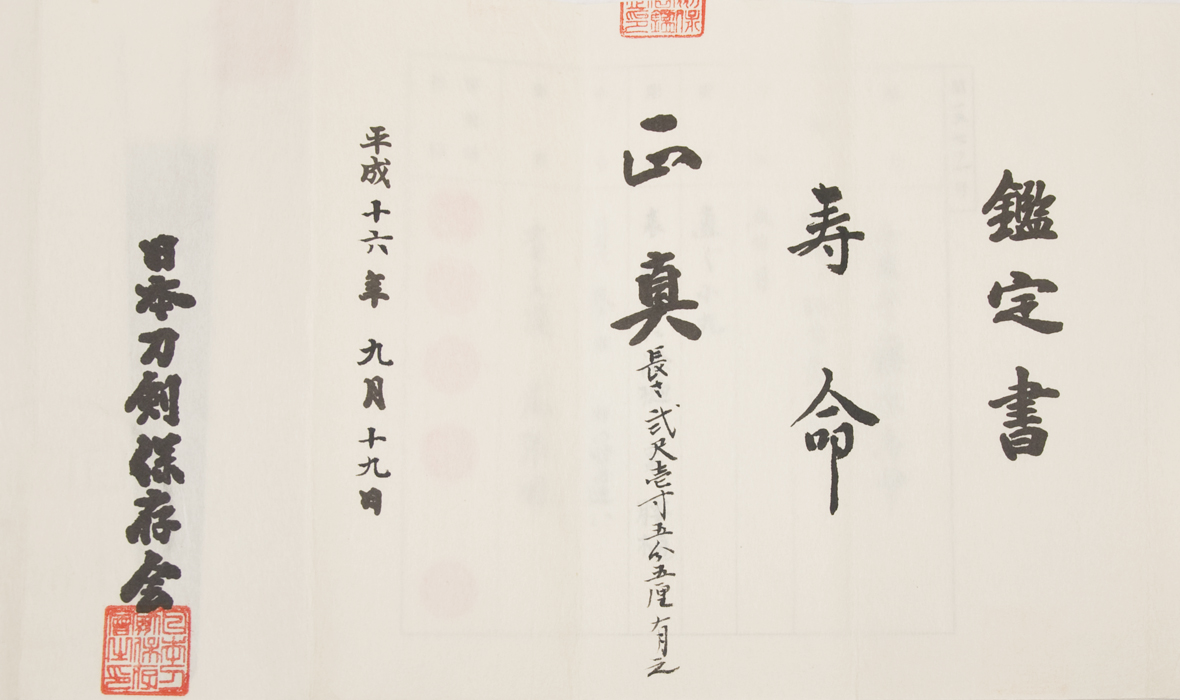 鑑定書
寿命
正真
長さ弐尺壱寸五分五厘有之
平成十六年九月十九日
日本刀剣保存会